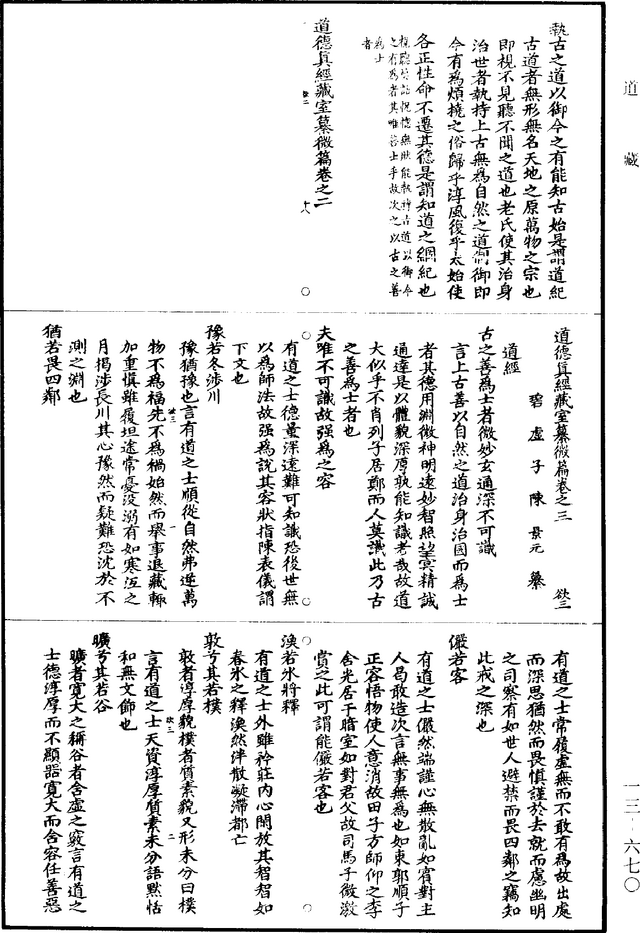 道藏
執古之道以御今之有能知古始是謂道紀
古道者無形無名天地之原萬物之宗也
即視不見聽不聞之道也老氏使其治身
治世者執持上古無爲自然之道制御即
今有爲煩撓之俗歸乎淳風復乎太始使
各正性命不遷其德是謂知道之綱紀也
之有爲者其唯善士乎故次之以古之善
爲士
者
道德眞經藏室纂微篇卷之二
欲二
十八
道德眞經藏室纂微篇卷之三
欲三
碧虛子陳景元纂
道經
古之善爲士者微妙玄通深不可識
言上古善以自然之道治身治國而爲士
者其德用淵微神明遠妙智照望冥精誠
通達是以體貌深厚孰能知識者哉故道
大似乎不肖列子居鄭而人莫識此乃古
之善爲士者也
夫唯不可識故強爲之容
有道之士德量深遠難可知識恐後世無
以爲師法故强爲說其容狀指陳表儀謂
下文也
豫若冬涉川
豫猶豫也言有道之士順從自然弗逆萬
物不爲福先不爲禍始然而舉事退藏輙
欲三
一
加重慎雖履坦途常憂沒溺有如寒沍之
月揭涉長川其心豫然而疑難恐沈於不
測之淵也
猶若畏四鄰
有道之士常履虛無而不敢有爲故出處
而深思猶然而畏慎謹於去就而慮幽明
之司察有如世人避禁而畏四鄰之竊知
此戒之深也
儼若客
有道之士儼然端謹心無散亂如賓對主
人曷敢造次言無事無爲也如東郭順子
正容悟物使人意消故田子方師仰之李
含光居于暗室如對君父故司馬子微激
賞之此可謂能儼若客也
渙若氷將釋
有道之士外雖衿莊内心閒放其智智如
春氷之釋渙然泮散凝滯都亡
敦兮其若樸
敦者淳厚貌樸者質素貌又形未分曰樸
欲三
二
言有道之士天資淳厚質素未分語默恬
和無文飾也
曠兮其若谷
曠者寛大之稱谷者含虛之竅言有道之
士德淳厚而不顯器寛大而含容任善惡
一三‧六七〇